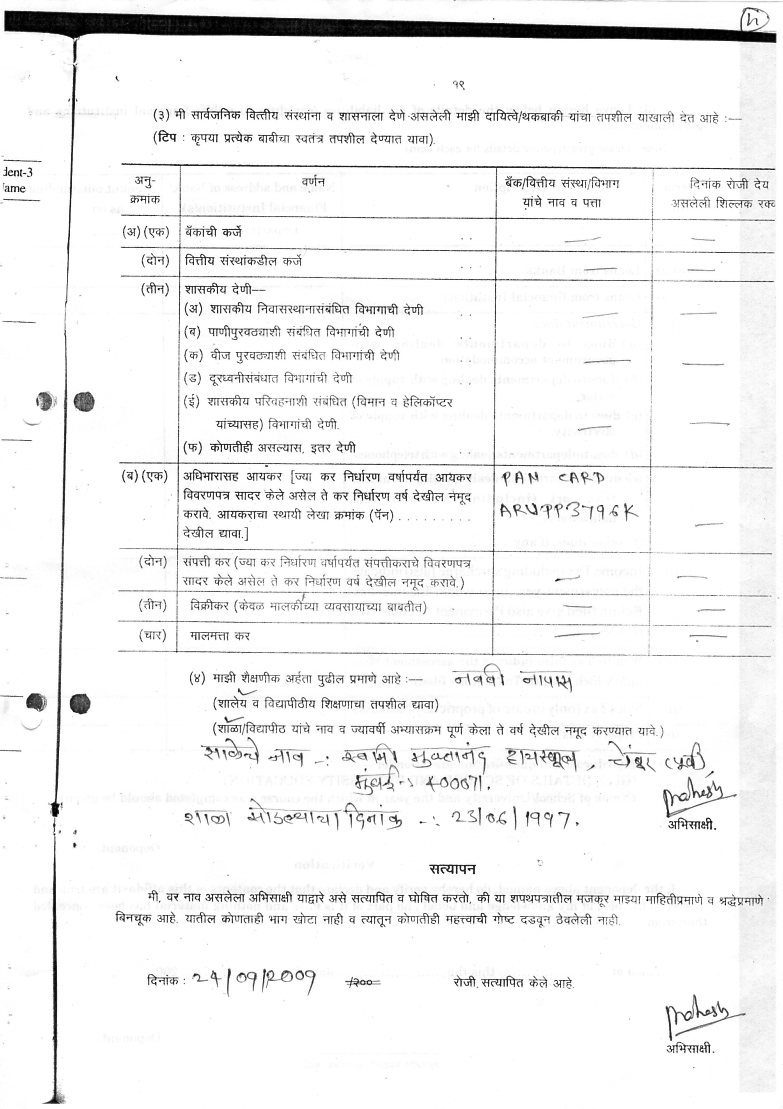 १९
(३) मी सार्वजनिक वित्तीय संस्थांना व शासनाला देणे असलेली माझी दायित्वे/थकबाकी यांचा तपशील याखाली देत आहे :—
(टिप : कृपया प्रत्येक बाबीचा स्वतंत्र तपशील देण्यात यावा).
dent-3
ame
अनु-
क्रमाक
वर्णन
बँक/वित्तीय संस्था/विभाग
यांचे नाव व पत्ता
दिनांक रोजी देय
असलेली शिल्लक रक्
(अ) (एक) बँकांची कर्जे
(दोन) वित्तीय संस्थांकडील कर्जे
(तीन) शासकीय देणी—
(अ) शासकीय निवासस्थानासंबंधित विभागाची देणी
(ब) पाणीपुरवठ्याशी संबंधित विभागांची देणी
(क) वीज पुरवठ्याशी संबंधित विभागांची देणी
(ड) दूरध्वनीसंबंधात विभागांची देणी
(इ) शासकीय परिवहनाशी संबंधित (विमान व हेलिकॉप्टर
यांच्यासह) विभागांची देणी.
(फ) कोणतीही असल्यास, इतर देणी
(ब) (एक) अधिभारासह आयकर [ज्या कर निर्धारण वर्षापर्यंत आयकर
विवरणपत्र सादर केले असेल ते कर निर्धारण वर्ष देखील नमूद
करावे. आयकराचा स्थायी लेखा क्रमांक (पॅन) . . . . . . . . .
देखील द्यावा.]
PAN CARD
ARVPP3796K
(दोन) संपत्ती कर (ज्या कर निर्धारण वर्षापर्यंत संपत्तीकराचे विवरणपत्र
सादर केले असेल ते कर निर्धारण वर्ष देखील नमूद करावे.)
(तीन) विक्रीकर (केवळ मालकीच्या व्यवसायाच्या बाबतीत)
(चार) मालमत्ता कर
(४) माझी शैक्षणीक अर्हता पुढील प्रमाणे आहे :— नववी नापास
(शालेय व विद्यापीठीय शिक्षणाचा तपशील द्यावा)
(शाळा/विद्यापीठ यांचे नाव व ज्यावर्षी अभ्यासक्रम पूर्ण केला ते वर्ष देखील नमूद करण्यात यावे.)
शाळेचे नाव -: स्वामी मुक्तानंद हायस्कूल चेंबूर (पूर्व)
मुंबई - 400071.
शाळा सोडल्याचा दिनांक -: 23/06/1997.
mahesh
अभिसाक्षी.
सत्यापन
मी, वर नाव असलेला अभिसाक्षी याद्वारे असे सत्यापित व घोषित करतो, की या शपथपत्रातील मजकूर माझ्या माहितीप्रमाणे व श्रद्धेप्रमाणे
बिनचूक आहे. यातील कोणताही भाग खोटा नाही व त्यातून कोणतीही महत्त्वाची गोष्ट दडवून ठेवलेली नाही.
दिनांक : 24/09/2009 /२०० रोजी सत्यापित केले आहे.
mahesh
अभिसाक्षी.